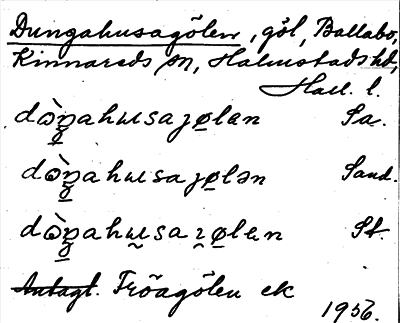 Dungahusagölen, göl, Ballabo,
Kinnareds sn, Halmstads hd,
Hall. l.
dɷ̀n̠gahusaȷø̠lan Sa.
dɷ̀n̠gahusaȷø̠lən Sand.
dɷ̀n̠gahusaɿø̠len St.
Antagl. Fröagölen ek
1956.